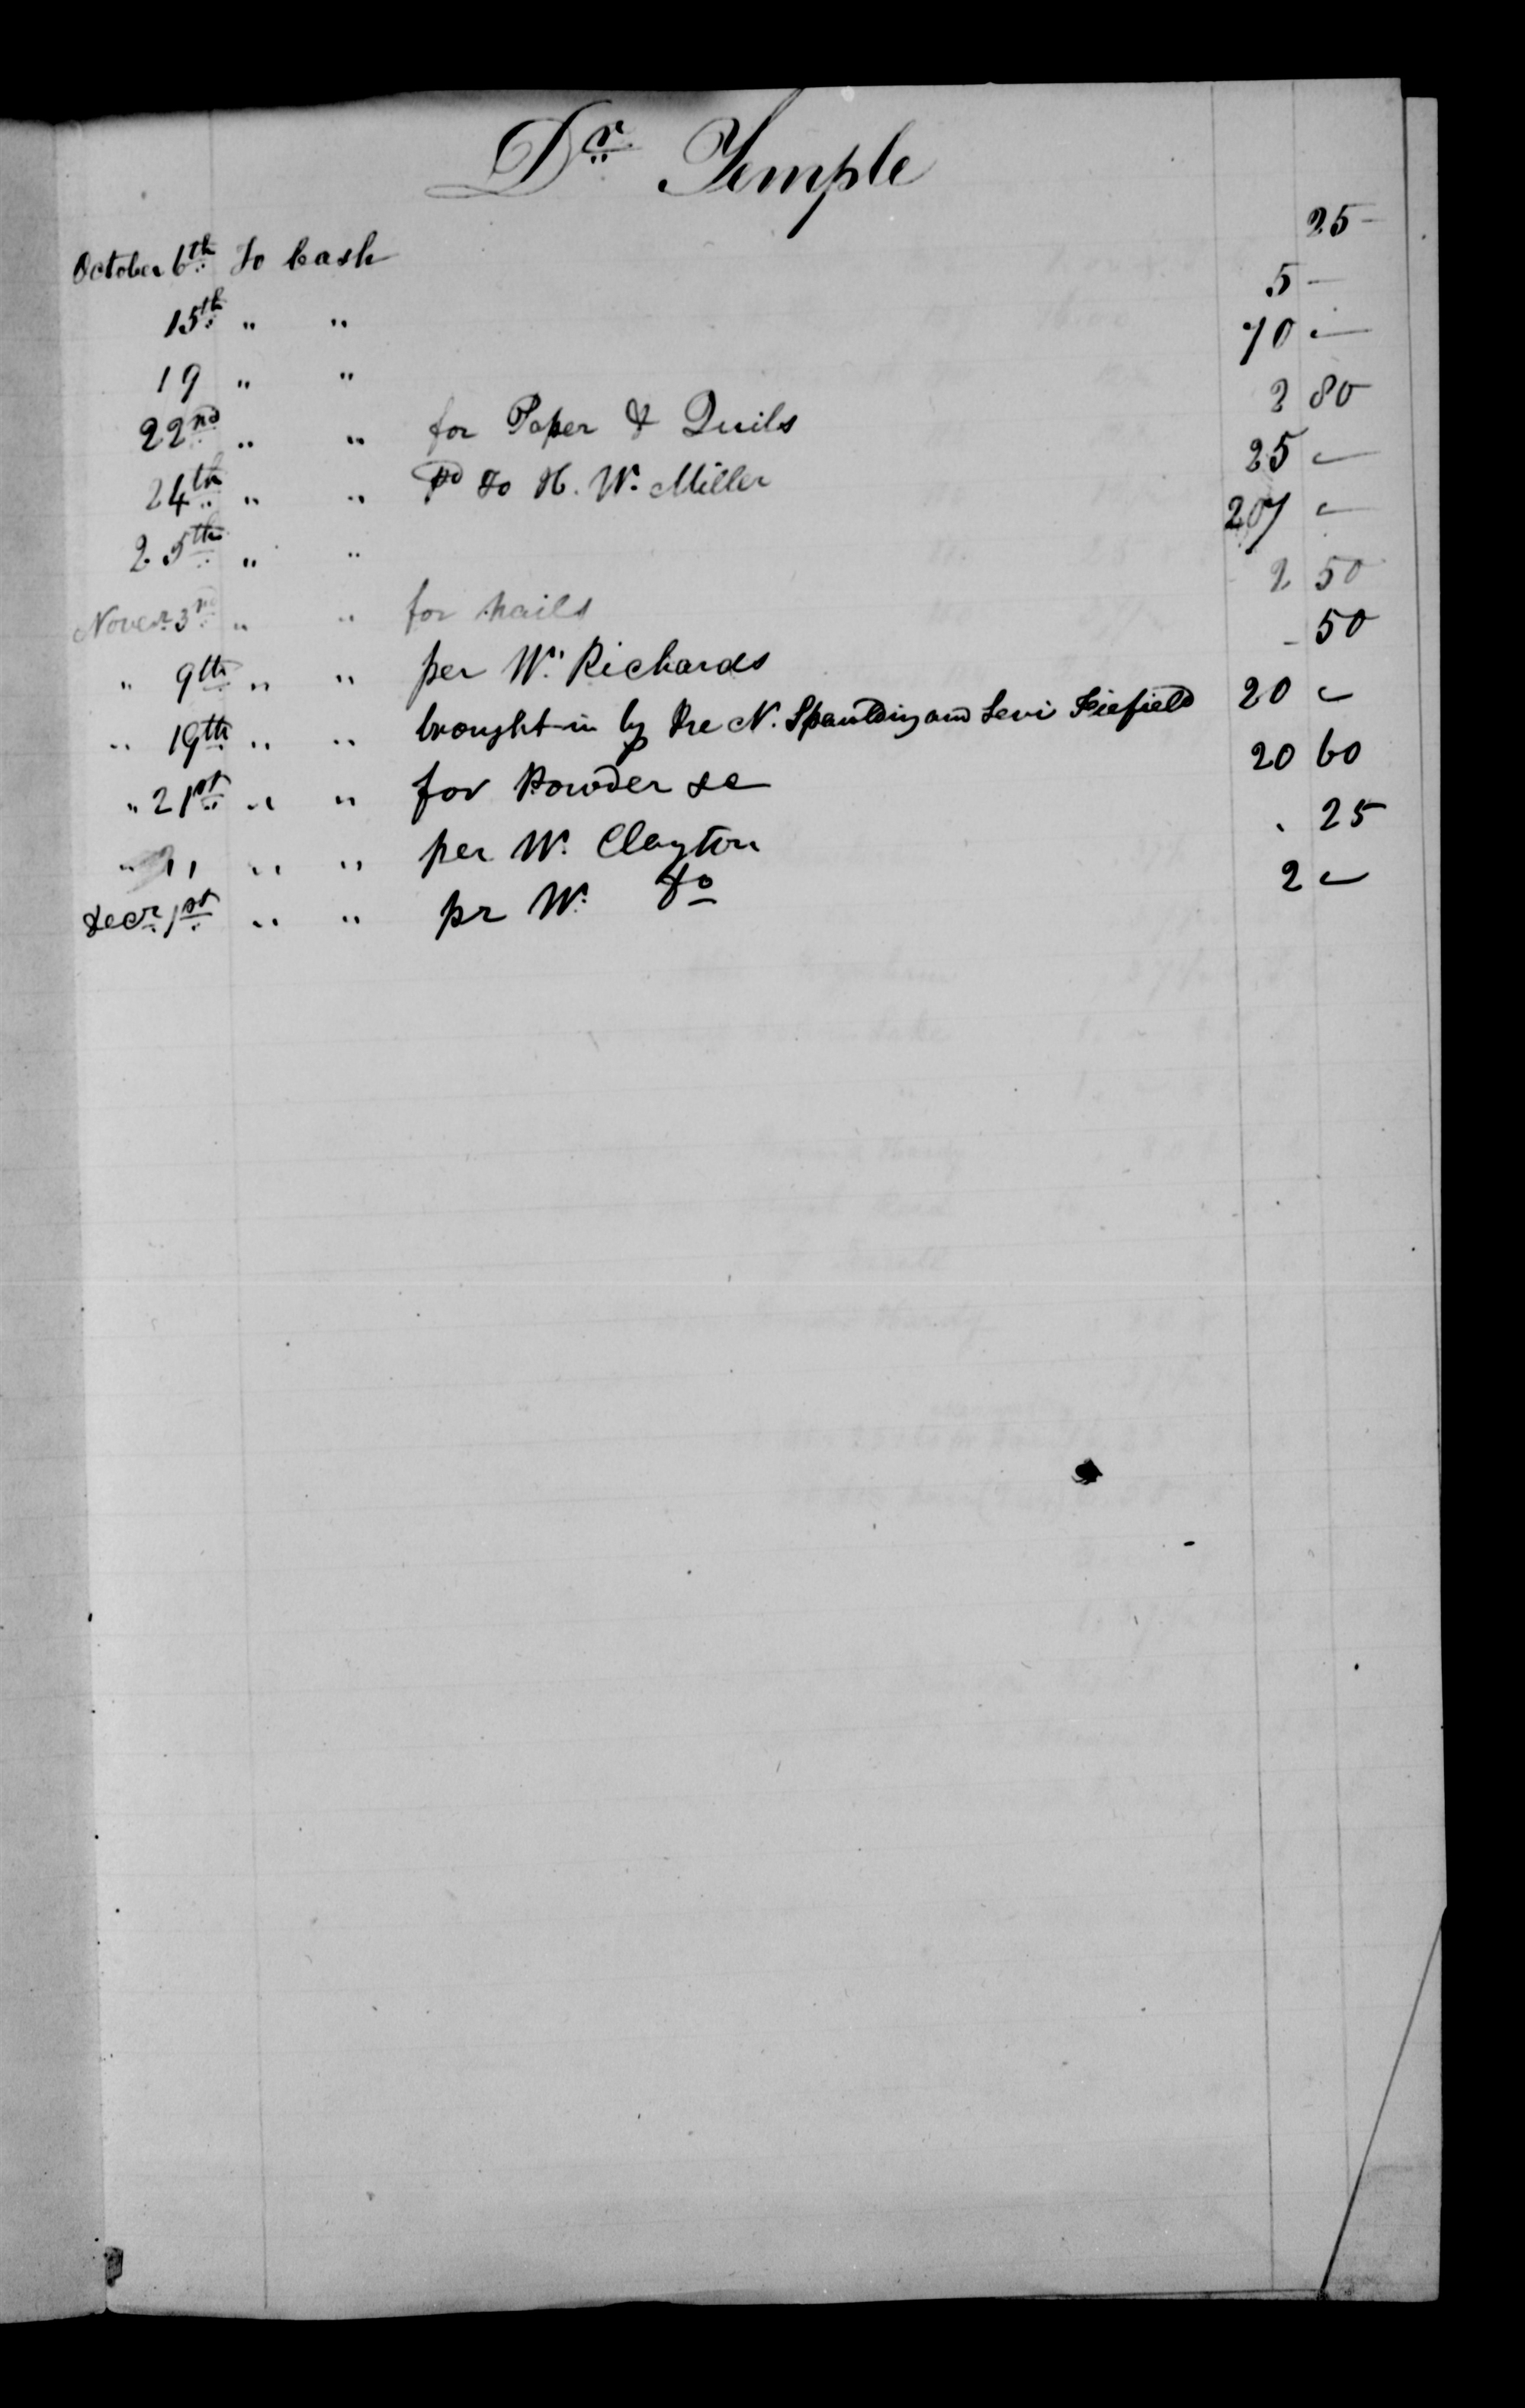 Dr. Temple
October 6th To Cash 25 -
15th " " 5 -
19 " " 70 -
22nd " " for Paper & Quils 2 80
24th " " Pd to H. W. Miller 25 -
25th " " 207 -
Novem 3rd " " for nails 2 50
" 9th " " per Wm Richards - 50
" 19th " " brought in by Ira N. Spaulding and Levi Fiefield 20 -
" 21st " " for Powder &c 20 60
" " " " per W. Clayton . 25
Decr 1st " " pr W. Do 2 -